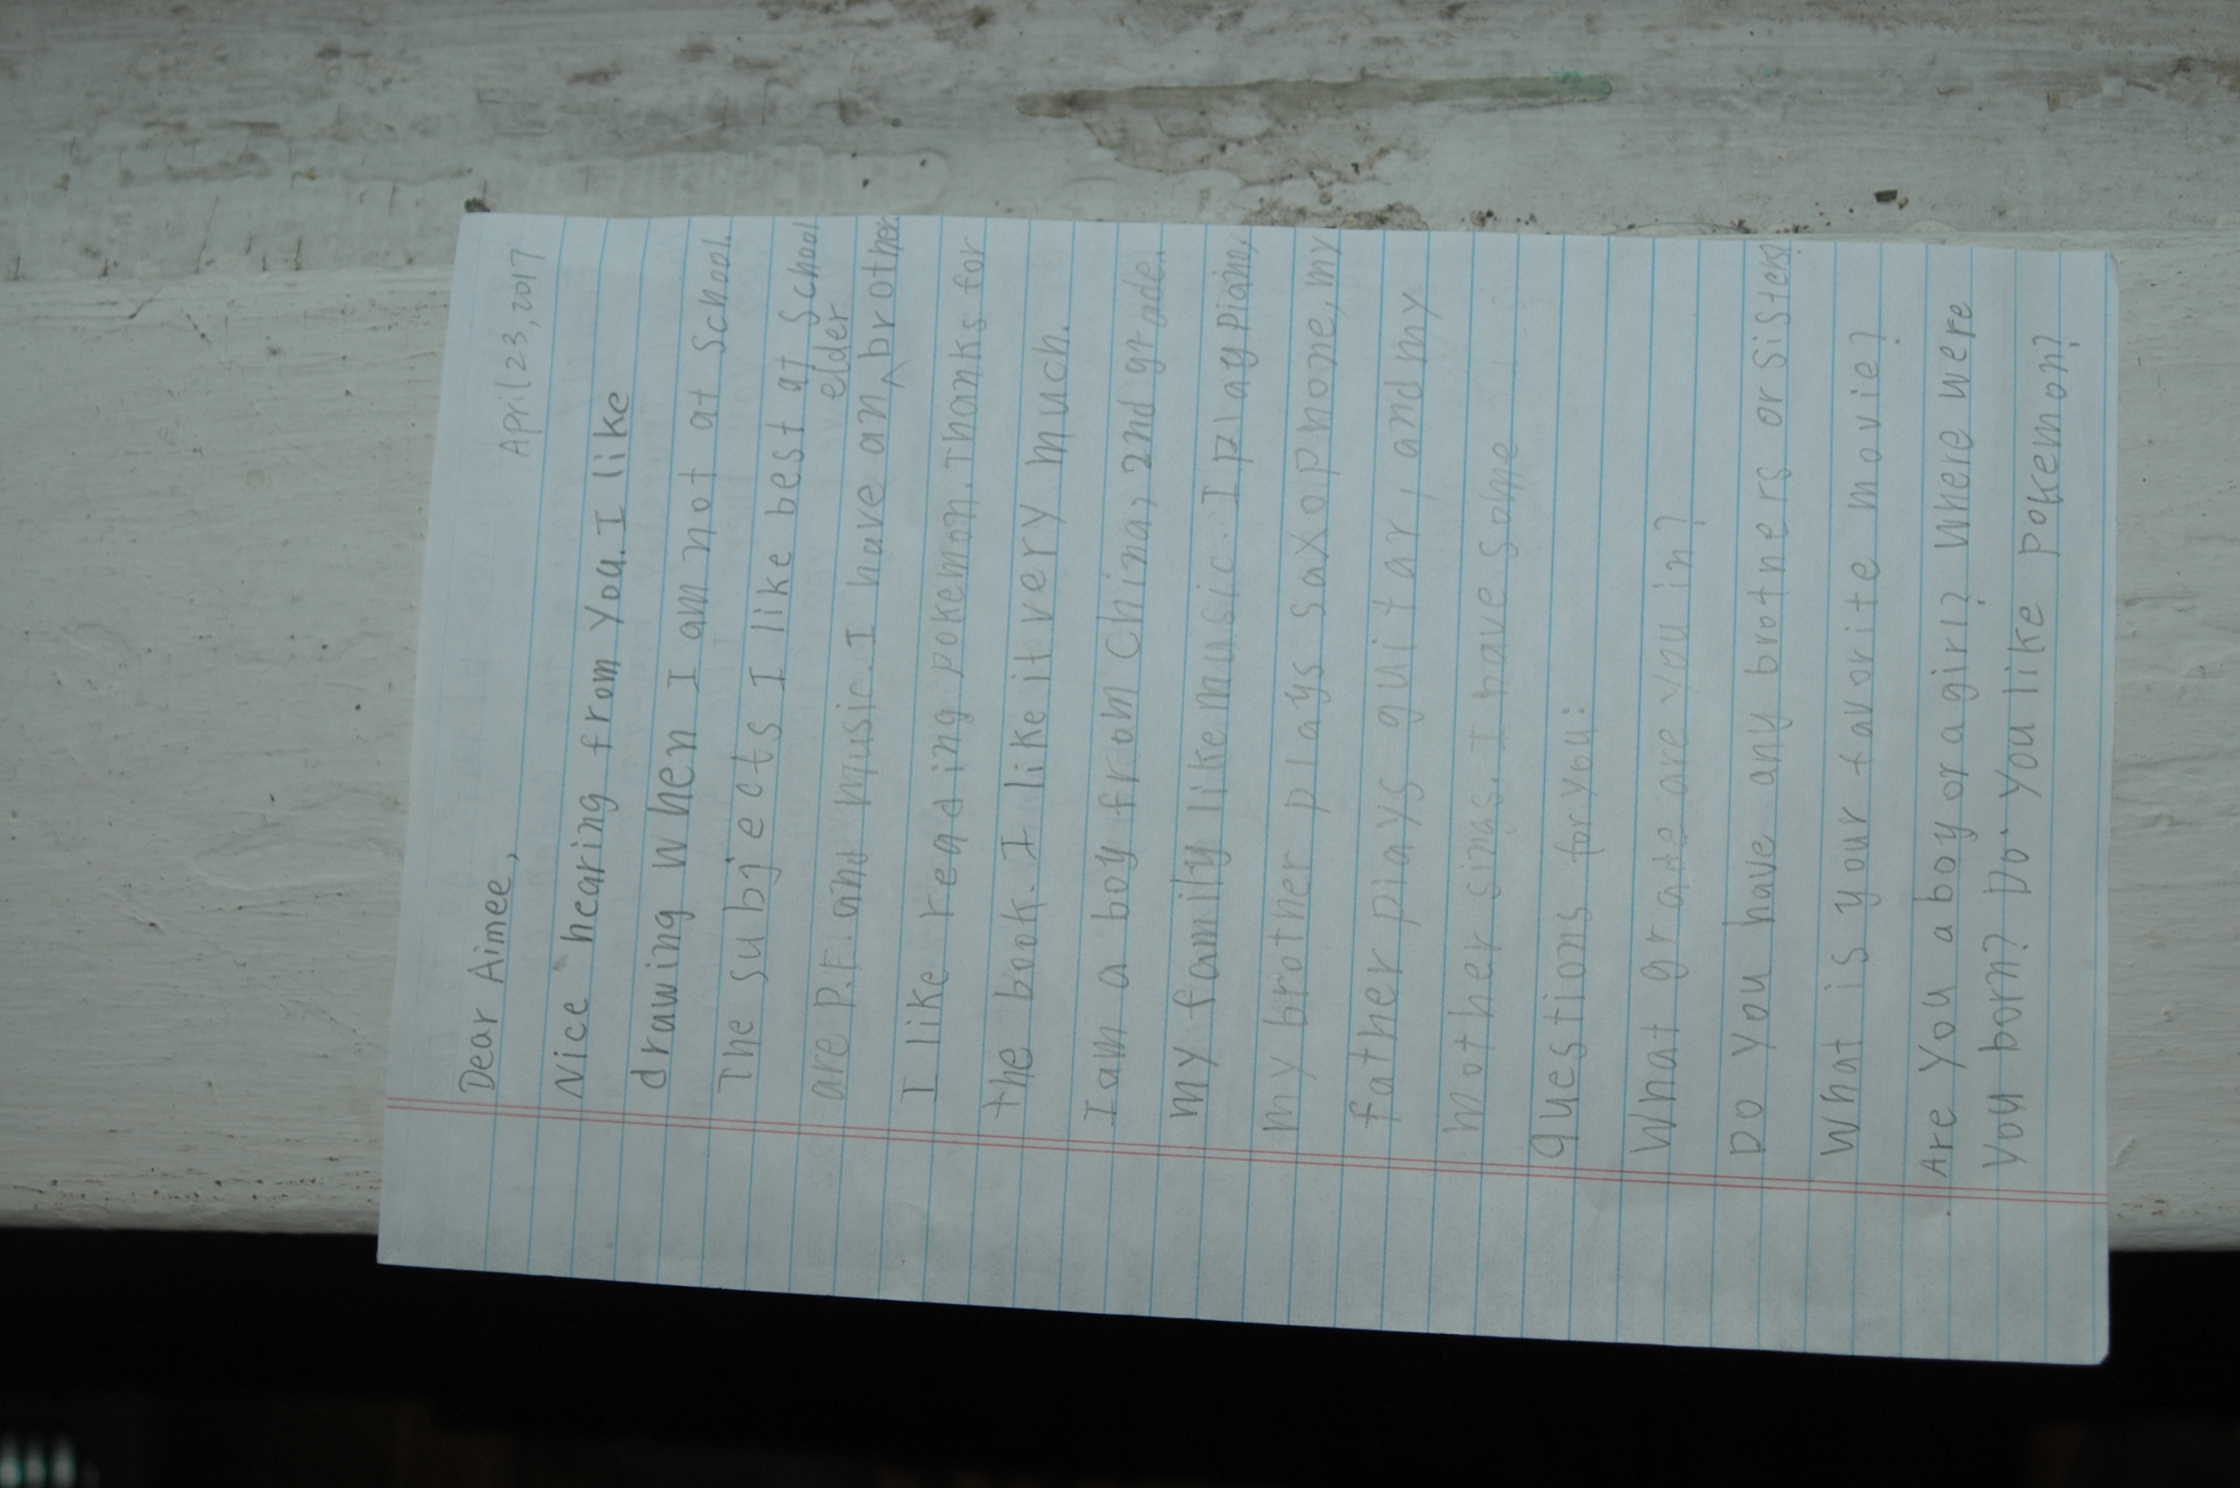 April 23, 2017
Dear Aimee,
Nice hearing from you. I like
drawing when I am not at school.
The subjects I like best at school
are P.E. and music. I have an ^ elder brother.
I like reading pokemon. Thanks for
the book. I like it very much.
I am a boy from China, 2nd grade.
My family like music. I play piano,
my brother plays saxophone, my
father plays guitar, and my
mother sings. I have some
questions for you:
What grade are you in?
Do you have any brothers or sisters?
What is your favorite movie?
Are you a boy or a girl? Where were
you born? Do you like pokemon?